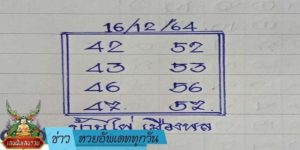 16/12/64
42 52
43 53
46 56
47 57
บ้านไผ่ เมืองพล
ข่าว หวยอัพเดททุกวัน